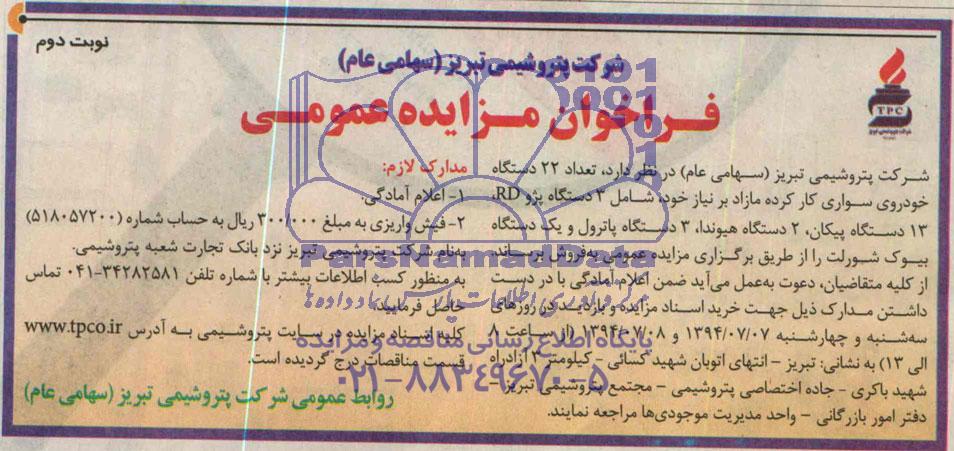 نوبت دوم
شرکت پتروشیمی تبریز (سهامی عام)
فراخوان مزایده عمومی
TPC
شرکت پتروشیمی تبریز (سهامی عام) در نظر دارد، تعداد ۲۲ دستگاه
خودروی سواری کار کرده مازاد بر نیاز خود، شامل ۳ دستگاه پژو RD،
۱۳ دستگاه پیکان، ۲ دستگاه هیوندا، ۳ دستگاه پاترول و یک دستگاه
بیوک شورلت را از طریق برگزاری مزایده عمومی به‌فروش برساند.
از کلیه متقاضیان، دعوت به‌عمل می‌آید ضمن اعلام آمادگی با در دست
داشتن مدارک ذیل جهت خرید اسناد مزایده و بازدید در روزهای
سه‌شنبه و چهارشنبه ۱۳۹۴/۰۷/۰۷ و ۱۳۹۴/۰۷/۰۸ (از ساعت ۸
الی ۱۳) به نشانی: تبریز - انتهای اتوبان شهید کسائی - کیلومتر ۲ آزادراه
شهید باکری - جاده اختصاصی پتروشیمی - مجتمع پتروشیمی تبریز -
دفتر امور بازرگانی - واحد مدیریت موجودی‌ها مراجعه نمایند.
مدارک لازم:
۱- اعلام آمادگی.
۲- فیش واریزی به مبلغ ۳۰۰/۰۰۰ ریال به حساب شماره (۵۱۸۰۵۷۲۰۰)
به‌نام شرکت پتروشیمی تبریز نزد بانک تجارت شعبه پتروشیمی.
به منظور کسب اطلاعات بیشتر با شماره تلفن ۳۴۲۸۲۵۸۱-۰۴۱ تماس
حاصل فرمایید.
کلیه اسناد مزایده در سایت پتروشیمی به آدرس www.tpco.ir
قسمت مناقصات درج گردیده است.
روابط عمومی شرکت پتروشیمی تبریز (سهامی عام)
ParsNamadData
پایگاه اطلاع رسانی مناقصه و مزایده
۰۲۱-۸۸۳۴۹۶۷۰-۵